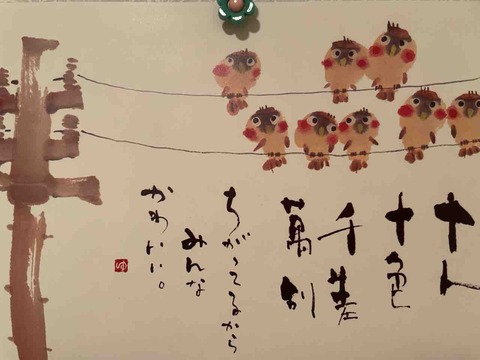 十人
十色
千差
萬別
ちがってるから
みんな
かわいい。